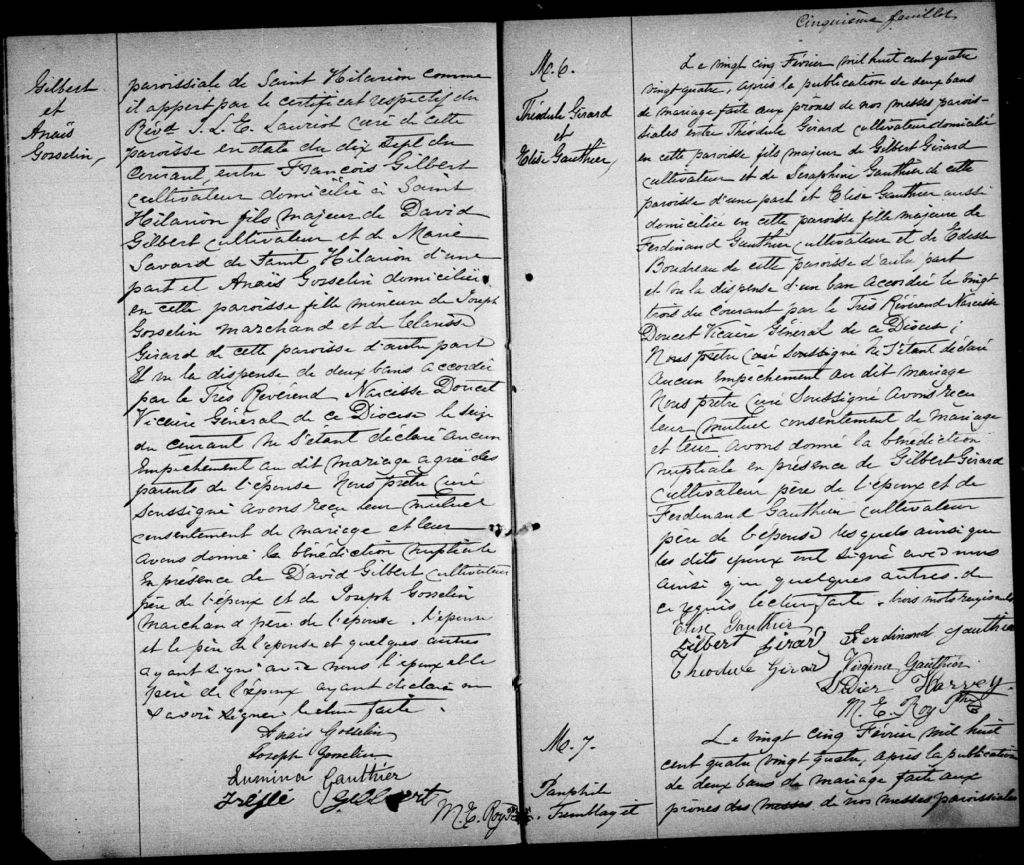 Gilbert
et
Anaïs
Gosselin,
paroissiale de Saint Hilarion comme
il appert par le certificat respectif du
Révd J. L. E. Lauriot curé de cette
paroisse en date du dix sept du
courant, entre François Gilbert
cultivateur domicilié à Saint
Hilarion fils majeur de David
Gilbert cultivateur et de Marie
Savard de Saint Hilarion d'une
part et Anaïs Gosselin domiciliée
en cette paroisse fille mineure de Joseph
Gosselin marchand et de Clarisse
Girard de cette paroisse d'autre part
Et vu la dispense de deux bans accordée
par le Très Révérend Narcisse Doucet
Vicaire Général de ce Diocèse le seize
du courant ne s'étant déclaré aucun
Empêchement au dit mariage agréé des
parents de l'épouse Nous prêtre curé
soussigné avons reçu leur mutuel
consentement de mariage et leur
avons donné la bénédiction nuptiale
En présence de David Gilbert cultivateur
père de l'époux et de Joseph Gosselin
marchand père de l'épouse. L'épouse
et le père de l'épouse et quelques autres
ayant signé avec nous l'époux et le
père de l'époux ayant déclaré ne
savoir signer. lecture faite.
Anaïs Gosselin
Joseph Gosselin
Lumina Gauthier
Tréflé Gilbert
M. E. Roy Ptre
Cinquième feuillet.
M. 6.
Théodule Girard
et
Elise Gauthier,
Le vingt cinq Février mil huit cent quatre
vingt quatre, après la publication de deux bans
de mariage faite aux prônes de nos messes parois-
siales entre Théodule Girard cultivateur domicilié
en cette paroisse fils majeur de Gilbert Girard
cultivateur et de Séraphine Gauthier de cette
paroisse d'une part et Elise Gauthier aussi
domiciliée en cette paroisse fille majeure de
Ferdinand Gauthier cultivateur et de Edesse
Boudreau de cette paroisse d'autre part
et vu la dispense d'un ban accordée le vingt
trois du courant par le Très Révérend Narcisse
Doucet Vicaire Général de ce Diocèse;
Nous prêtre curé soussigné ne s'étant déclaré
aucun Empêchement au dit mariage
Nous prêtre curé soussigné avons reçu
leur mutuel consentement de mariage
et leur avons donné la bénédiction
nuptiale en présence de Gilbert Girard
cultivateur père de l'époux et de
Ferdinand Gauthier cultivateur
père de l'épouse lesquels ainsi que
les dits époux ont signé avec nous
ainsi que quelques autres. de
ce requis lecture faite. trois mots
Elise Gauthier
Gilbert Girard Ferdinand Gauthier
Théodule Girard Virginie Gauthier
Didier Harvey
M. E. Roy Ptre
M. 7.
Pamphil
Tremblay et
Le vingt cinq Février mil huit
cent quatre vingt quatre, après la publication
de deux bans de mariage faite aux
prônes des messes de nos messes paroissiales